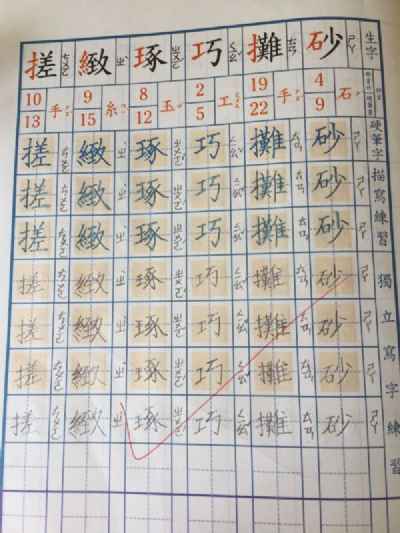 生字 硬筆字描寫練習 獨立寫字練習
砂 ㄕㄚ
石 4 9
砂 ㄕㄚ
砂 ㄕㄚ
砂 ㄕㄚ
砂 ㄕㄚ
砂 ㄕㄚ
砂 ㄕㄚ
砂 ㄕㄚ
攤 ㄊㄢ
手 19 22
攤 ㄊㄢ
攤 ㄊㄢ
攤 ㄊㄢ
攤 ㄊㄢ
攤 ㄊㄢ
攤 ㄊㄢ
攤 ㄊㄢ
巧 ㄑㄧㄠˇ
工 2 5
巧 ㄑㄧㄠˇ
巧 ㄑㄧㄠˇ
巧 ㄑㄧㄠˇ
巧 ㄑㄧㄠˇ
巧 ㄑㄧㄠˇ
巧 ㄑㄧㄠˇ
巧 ㄑㄧㄠˇ
琢 ㄓㄨㄛˊ
玉 8 12
琢 ㄓㄨㄛˊ
琢 ㄓㄨㄛˊ
琢 ㄓㄨㄛˊ
琢 ㄓㄨㄛˊ
琢 ㄓㄨㄛˊ
琢 ㄓㄨㄛˊ
琢 ㄓㄨㄛˊ
緻 ㄓˋ
糸 9 15
緻 ㄓˋ
緻 ㄓˋ
緻 ㄓˋ
緻 ㄓˋ
緻 ㄓˋ
緻 ㄓˋ
緻 ㄓˋ
搓 ㄘㄨㄛ
手 10 13
搓 ㄘㄨㄛ
搓 ㄘㄨㄛ
搓 ㄘㄨㄛ
搓 ㄘㄨㄛ
搓 ㄘㄨㄛ
搓 ㄘㄨㄛ
搓 ㄘㄨㄛ